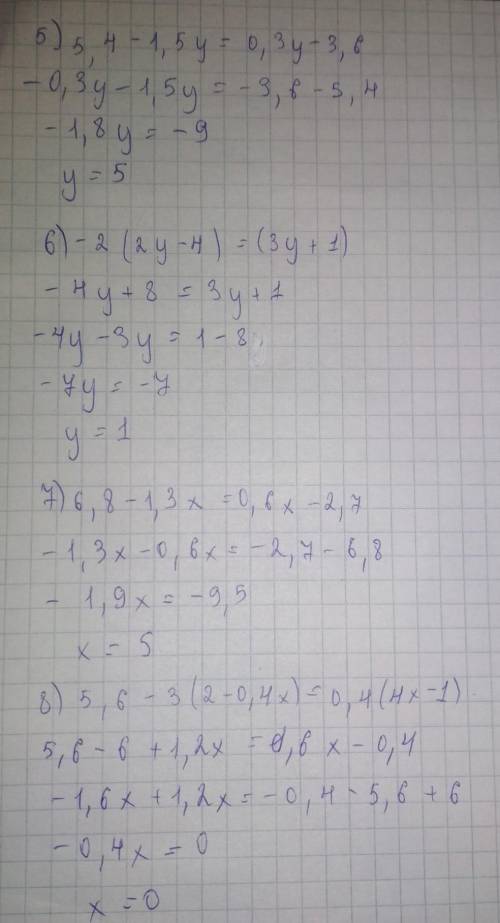 5) 5,4 - 1,5y = 0,3y - 3,6
- 0,3y - 1,5y = - 3,6 - 5,4
- 1,8y = - 9
y = 5
6) - 2 (2y - 4) = (3y + 1)
- 4y + 8 = 3y + 1
- 4y - 3y = 1 - 8
- 7y = - 7
y = 1
7) 6,8 - 1,3x = 0,6x - 2,7
- 1,3x - 0,6x = - 2,7 - 6,8
- 1,9x = - 9,5
x = 5
8) 5,6 - 3 (2 - 0,4x) = 0,4 (4x - 1)
5,6 - 6 + 1,2x = 1,6x - 0,4
- 1,6x + 1,2x = - 0,4 - 5,6 + 6
- 0,4x = 0
x = 0